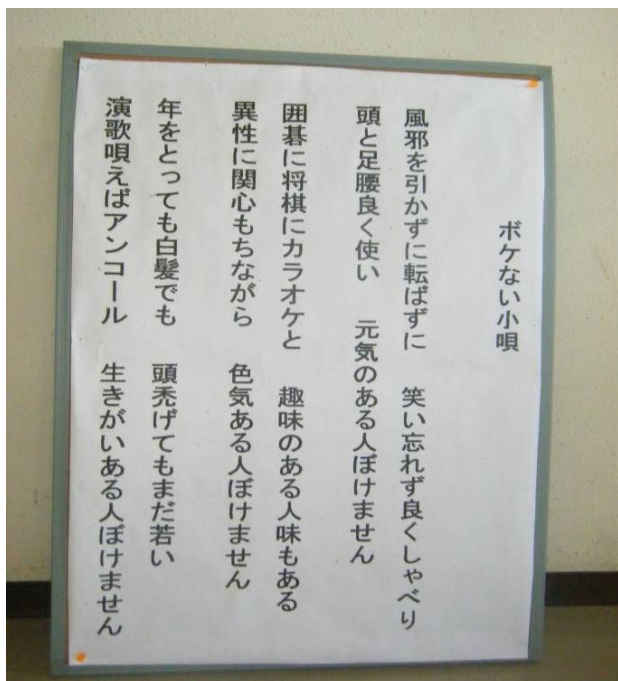 ボケない小唄
風邪を引かずに転ばずに　笑い忘れず良くしゃべり
頭と足腰良く使い　元気のある人ぼけません
囲碁に将棋にカラオケと　趣味のある人味もある
異性に関心もちながら　色気ある人ぼけません
年をとっても白髪でも　頭禿げてもまだ若い
演歌唄えばアンコール　生きがいある人ぼけません